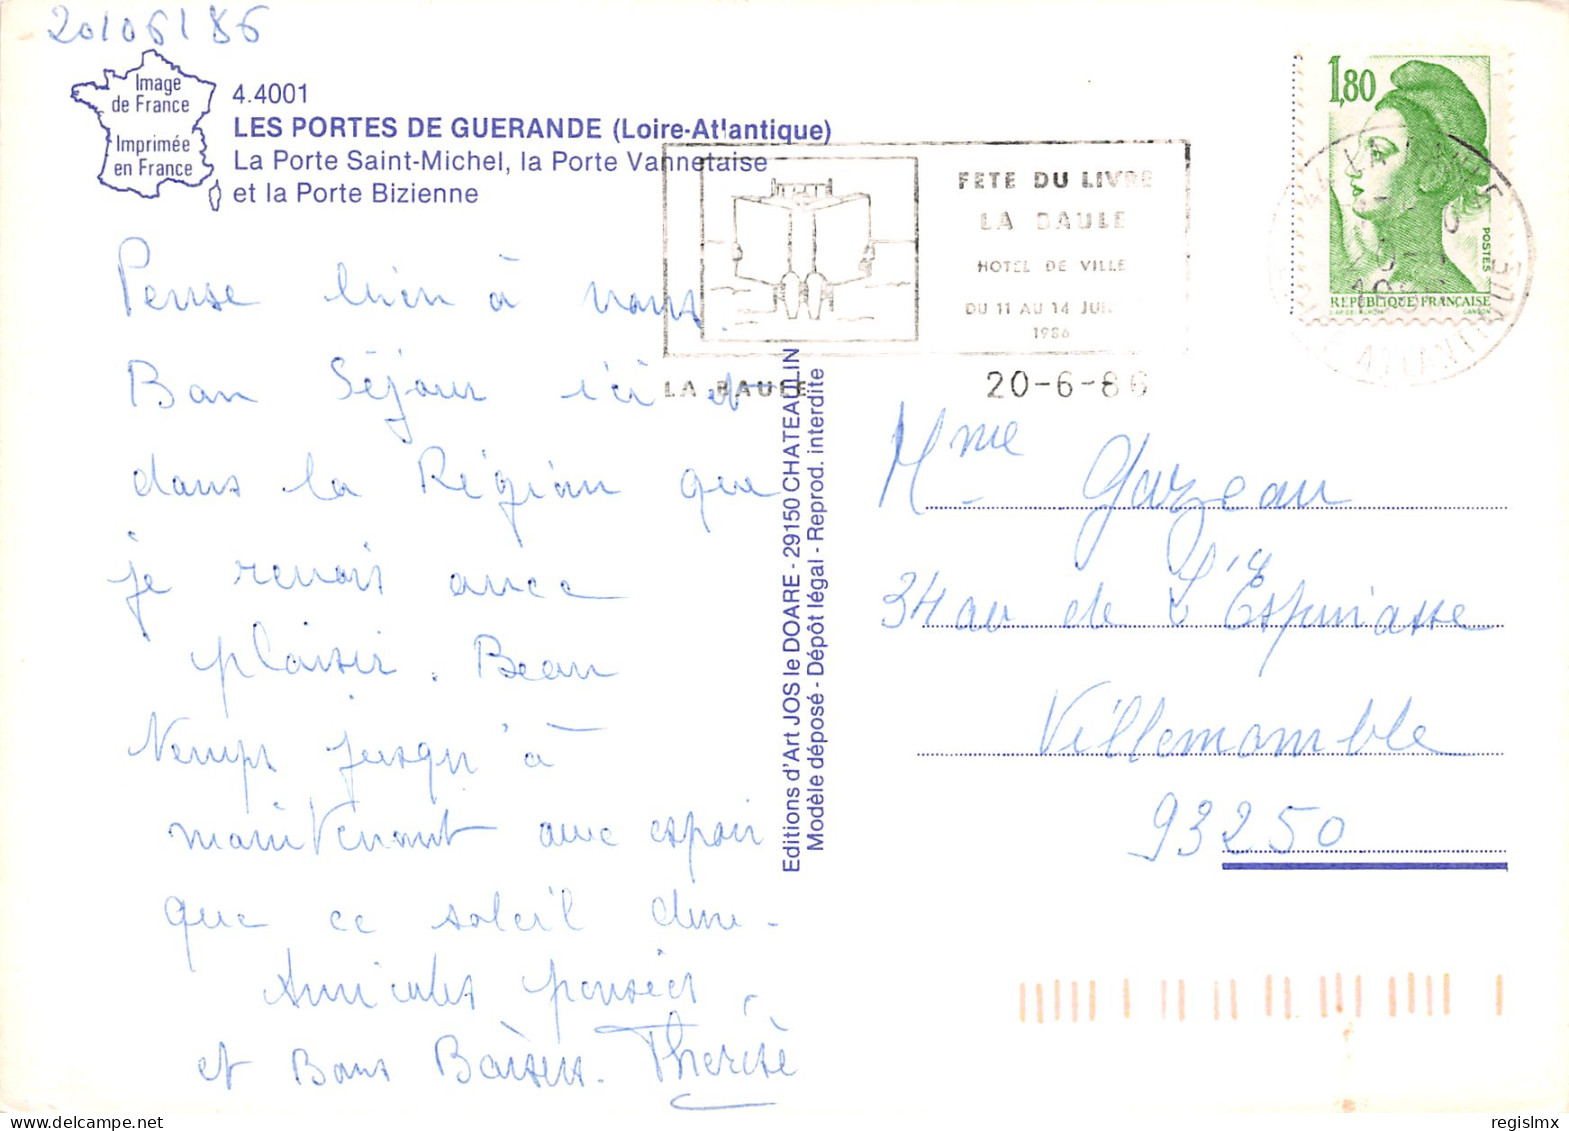 20/06/86
Image
de France
Imprimée
en France
4.4001
LES PORTES DE GUERANDE (Loire-Atlantique)
La Porte Saint-Michel, la Porte Vannetaise
et la Porte Bizienne
Pense bien à vous.
Bon Séjour ici et
dans la Région que
je revois avec
plaisir. Beau
Temps jusqu'à
maintenant avec espoir
que ce soleil dure.
Amicales pensées,
et Bons Baisers. Thérèse
Editions d'Art JOS le DOARE - 29150 CHATEAULIN
Modèle déposé - Dépôt légal - Reprod. interdite
FETE DU LIVRE
LA BAULE
HOTEL DE VILLE
DU 11 AU 14 JUI
1986
LA BAULE
20-6-86
1,80
POSTES
REPUBLIQUE FRANÇAISE
GANDON
LA BAULE
ATLANTIQUE
Mme Gazeau
34 av de l'Espinasse
Villemomble
93250
regislmx